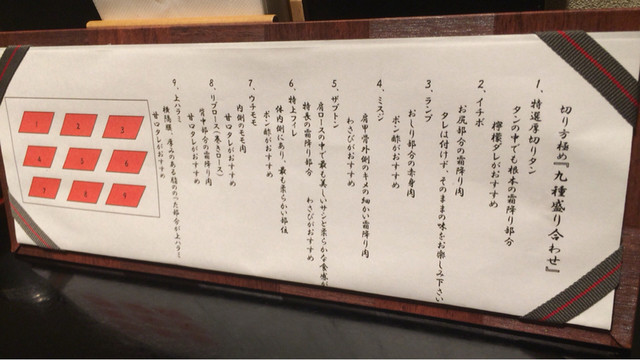 切り方極め『九種盛り合わせ』
1、特選厚切りタン
タンの中でも根本の霜降り部分
檸檬ダレがおすすめ
2、イチボ
お尻部分の霜降り肉
タレは付けず、そのままの味をお楽しみ下さい
3、ランプ
おしり部分の赤身肉
ポン酢がおすすめ
4、ミスジ
肩甲骨外側のキメの細かい霜降り肉
わさびがおすすめ
5、ザブトン
肩ロースの中で最も美しいサシと柔らかな食感が
特長の霜降り部分 わさびがおすすめ
6、特上フィレ
体内側にあり、最も柔らかい部位
ポン酢がおすすめ
7、ウチモモ
内側のモモ肉
甘口タレがおすすめ
8、リブロース(巻きロース)
背中部分の霜降り肉
甘口タレがおすすめ
9、上ハラミ
横隔膜、厚みのある脂ののった部分が上ハラミ
甘口タレがおすすめ
1 2 3
4 5 6
7 8 9